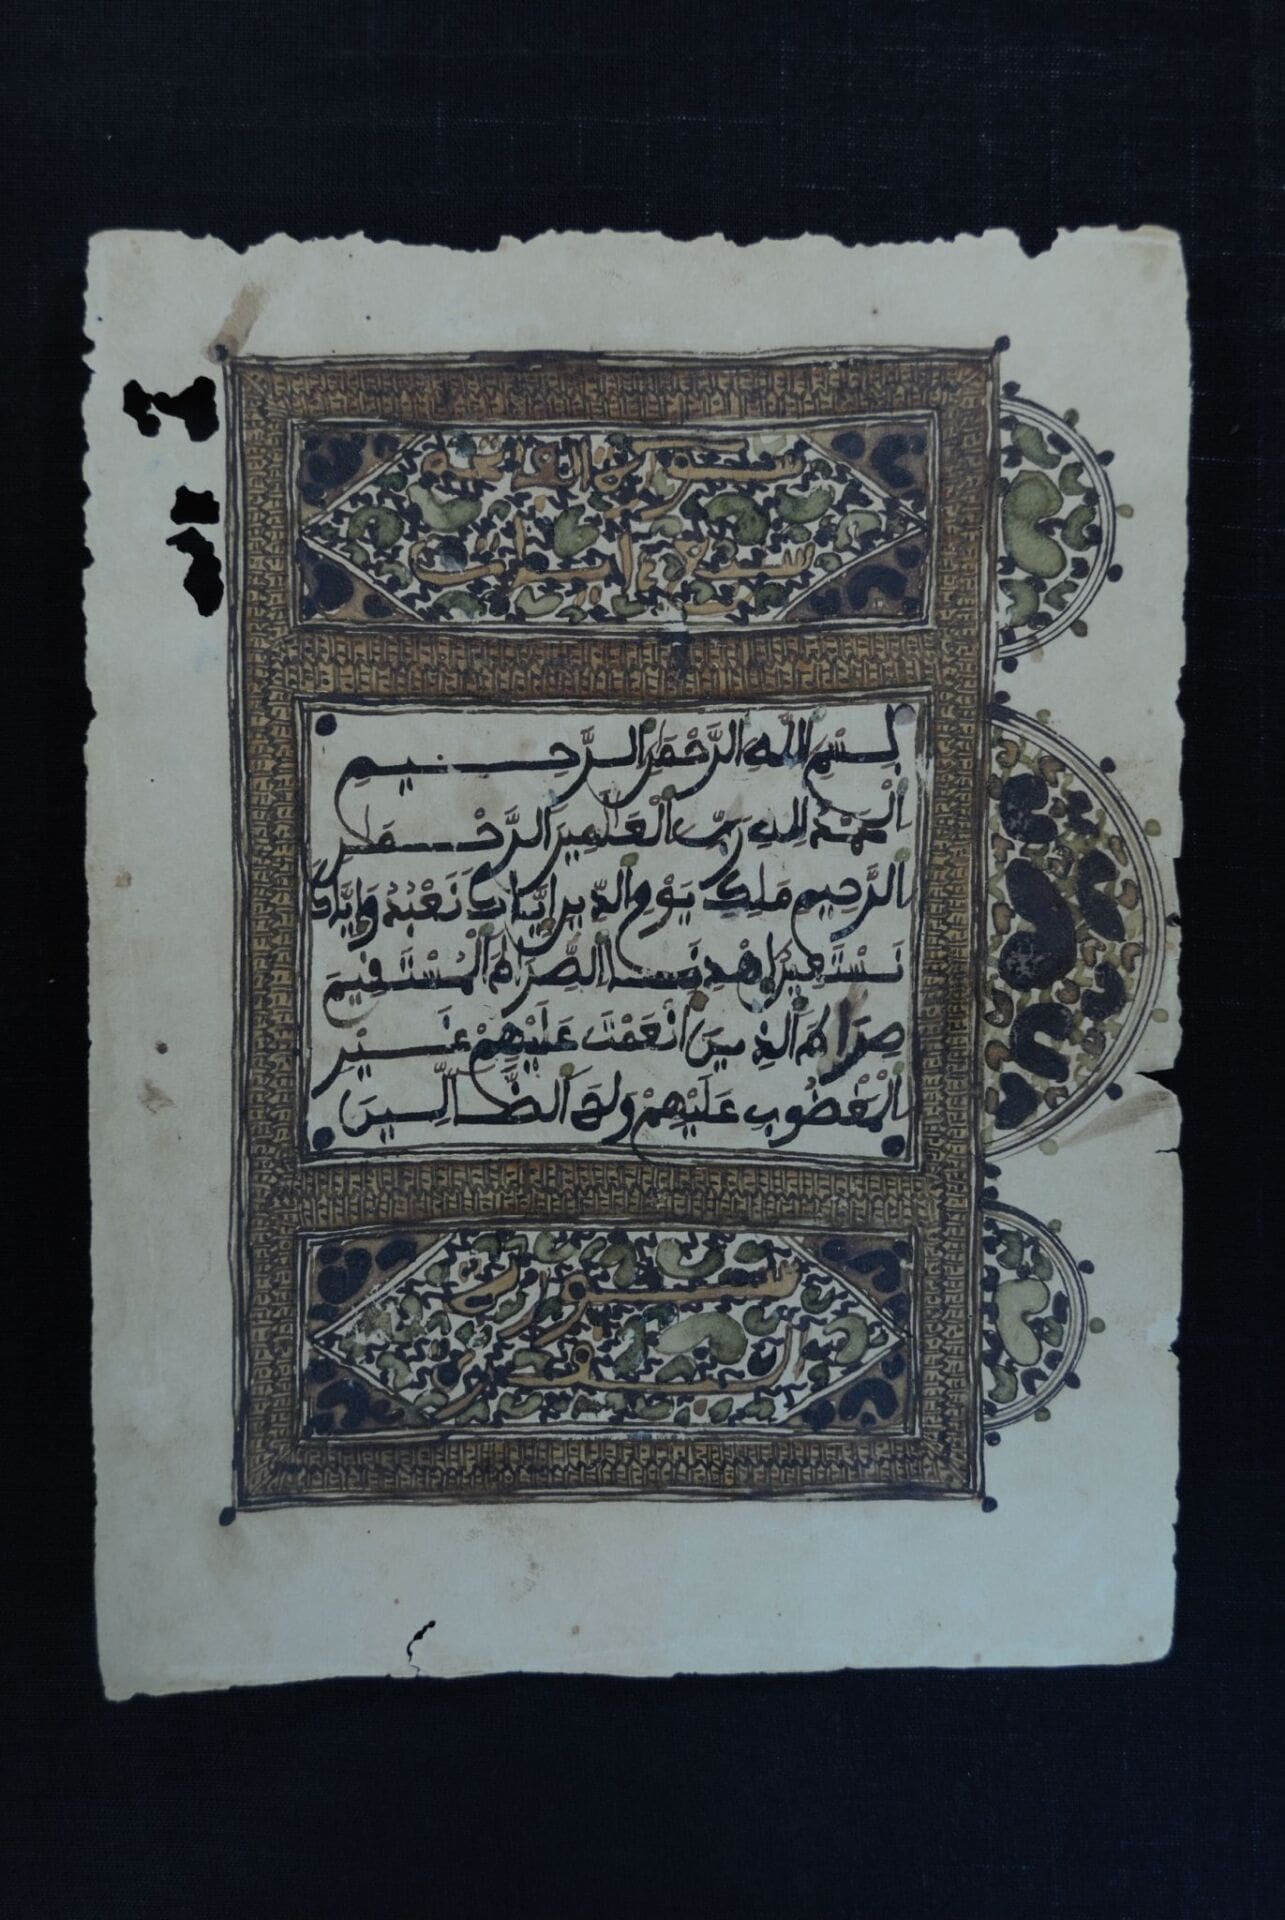 سورة الفاتحة
سبع ايات
بِسْمِ اللَّهِ الرَّحْمَٰنِ الرَّحِيمِ
الْحَمْدُ لِلَّهِ رَبِّ الْعَٰلَمِينَ الرَّحْمَٰنِ
الرَّحِيمِ مَلِكِ يَوْمِ الدِّينِ اِيَّاكَ نَعْبُدُ وَاِيَّاكَ
نَسْتَعِينُ اهْدِنَا الصِّرَاطَ الْمُسْتَقِيمَ
صِرَاطَ الَّذِينَ أَنْعَمْتَ عَلَيْهِمْ غَيْرِ
الْمَغْضُوبِ عَلَيْهِمْ وَلَا الضَّالِّينَ
سورة